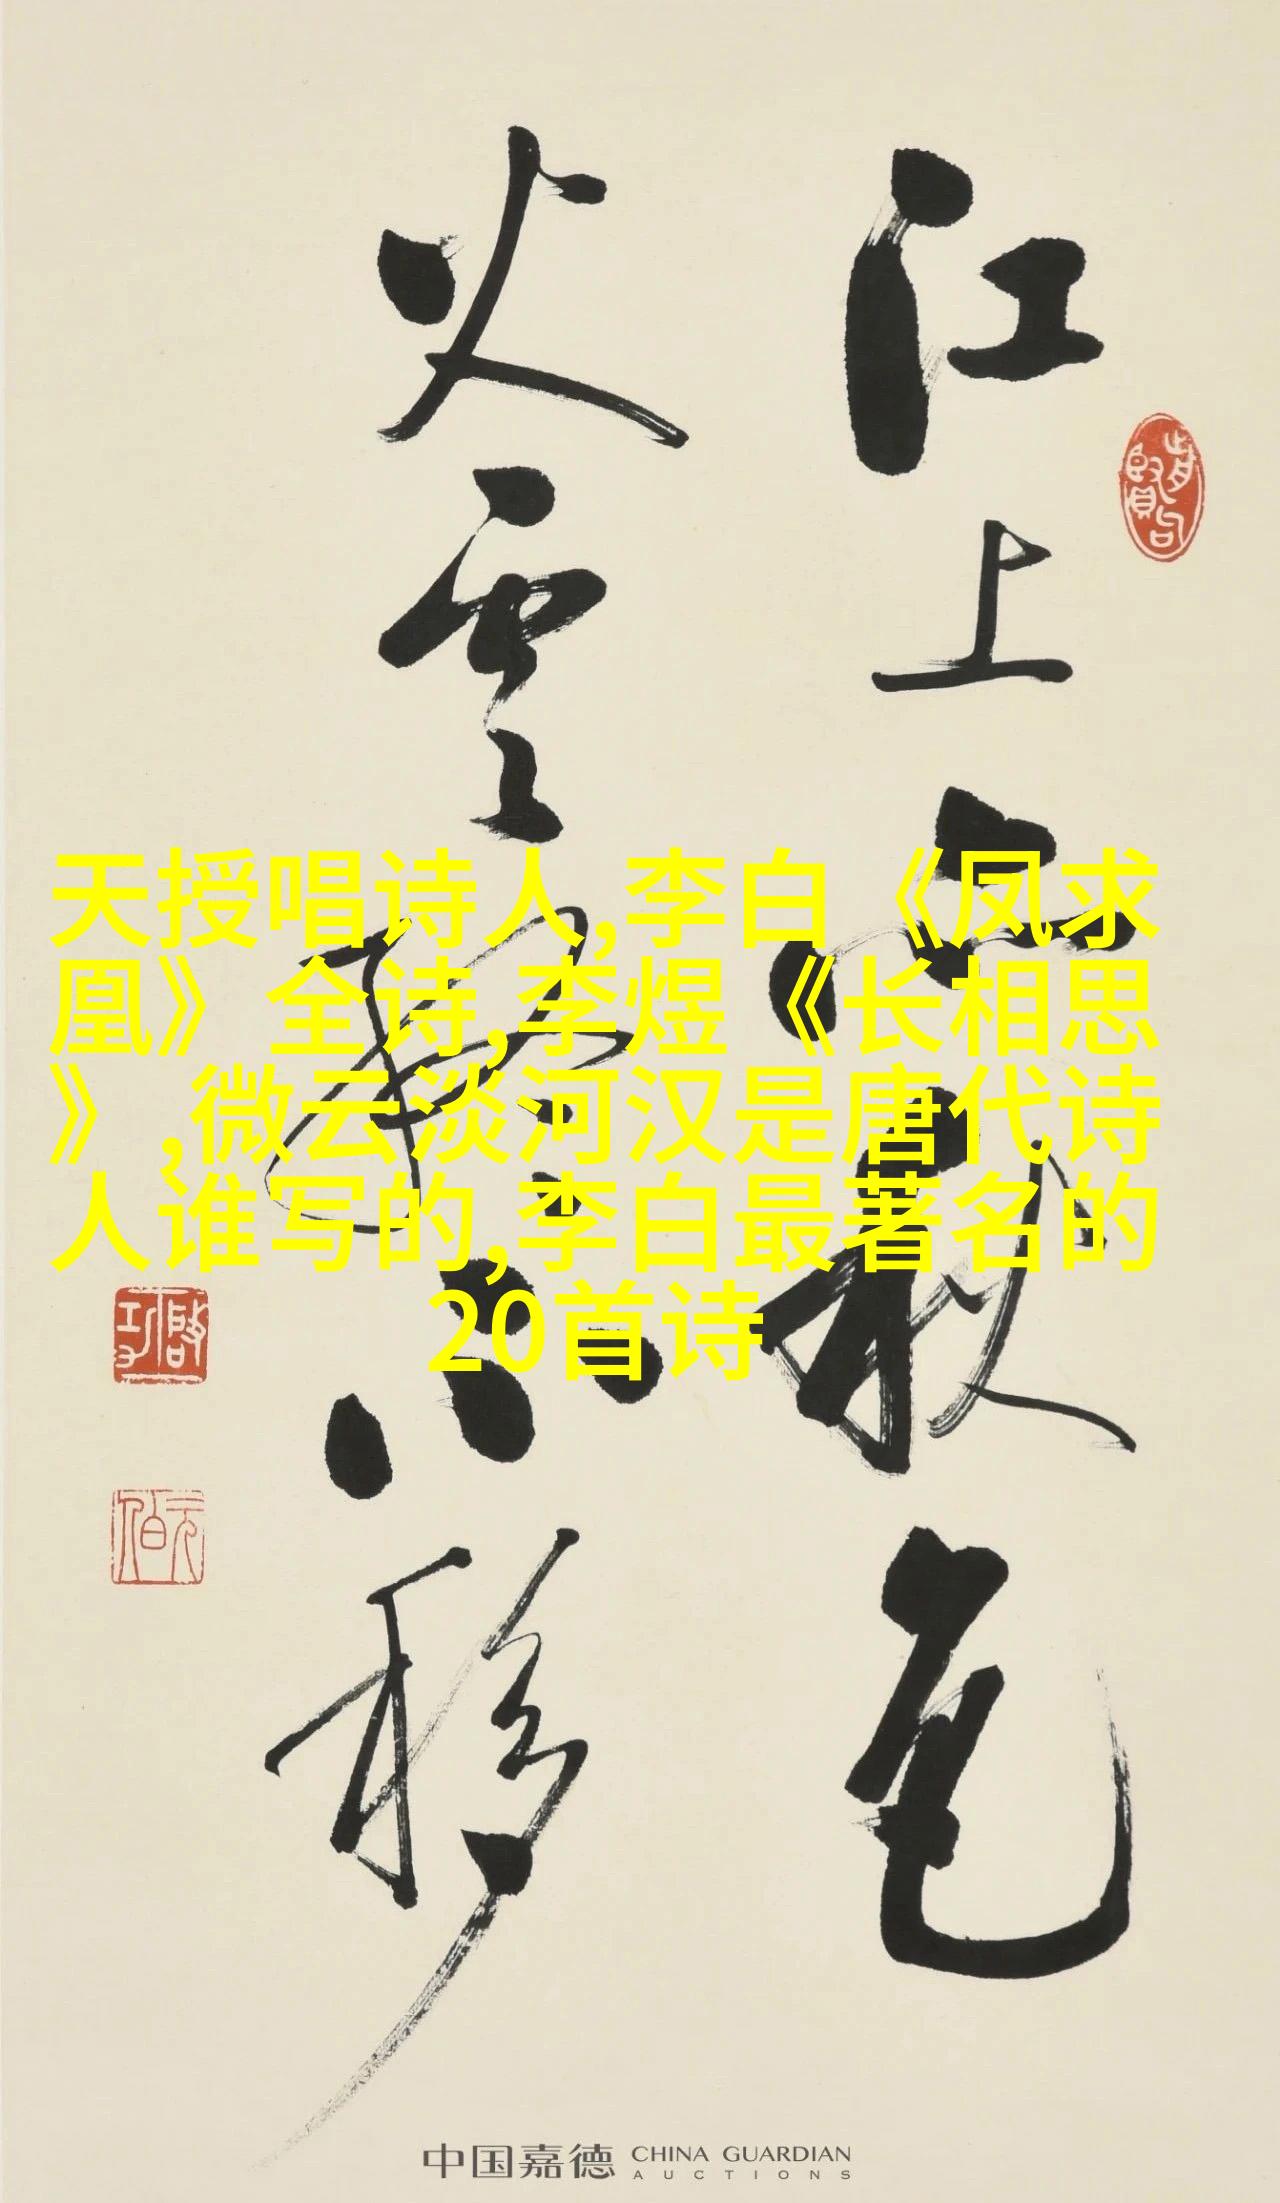 江上亦秋色
火雲終不移
天授唱诗人,李白《凤求
凰》全诗,李煜《长相思
》,微云淡河汉是唐代诗
人谁写的,李白最著名的
20首诗
啟功
元伯
中国嘉德 CHINA GUARDIAN
AUCTIONS